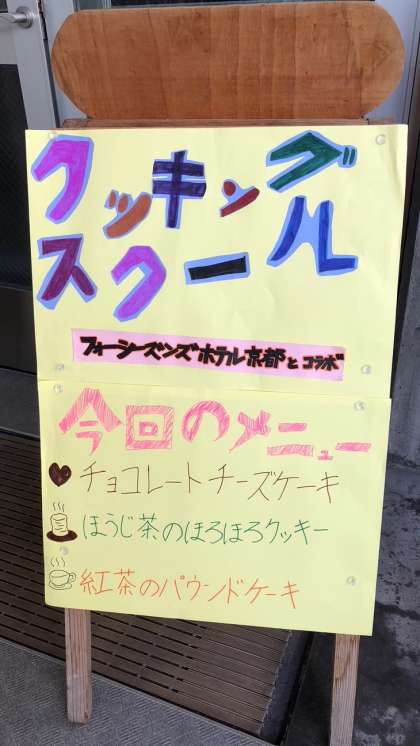 クッキング
スクール
フォーシーズンズホテル京都とコラボ
今回のメニュー
チョコレートチーズケーキ
ほうじ茶のほろほろクッキー
紅茶のパウンドケーキ